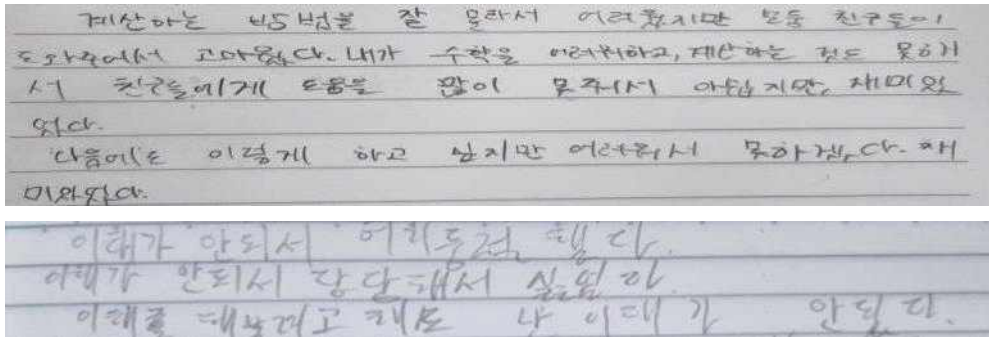 계산하는 방법을 잘 몰라서 어려웠지만 모둠 친구들이
도와주어서 고마웠다. 내가 수학을 어려워하고, 계산하는 것도 못하기
서 친구들에게 도움을 많이 못줘서 아쉽지만, 재미있
었다.
다음에도 이렇게 하고 싶지만 어려워서 못하겠다. 재
미있었다.
이해가 안되서 어리둥절 했다.
이해가 안되서 답답해서 싫었다
이해를 해보려고 해도 나 이해가 안됬다.